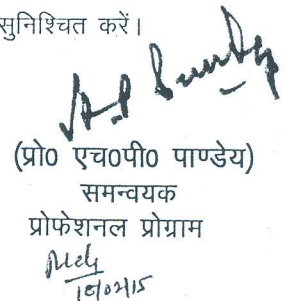 सुनिश्चित करें।
(प्रो० एच०पी० पाण्डेय)
समन्वयक
प्रोफेशनल प्रोग्राम